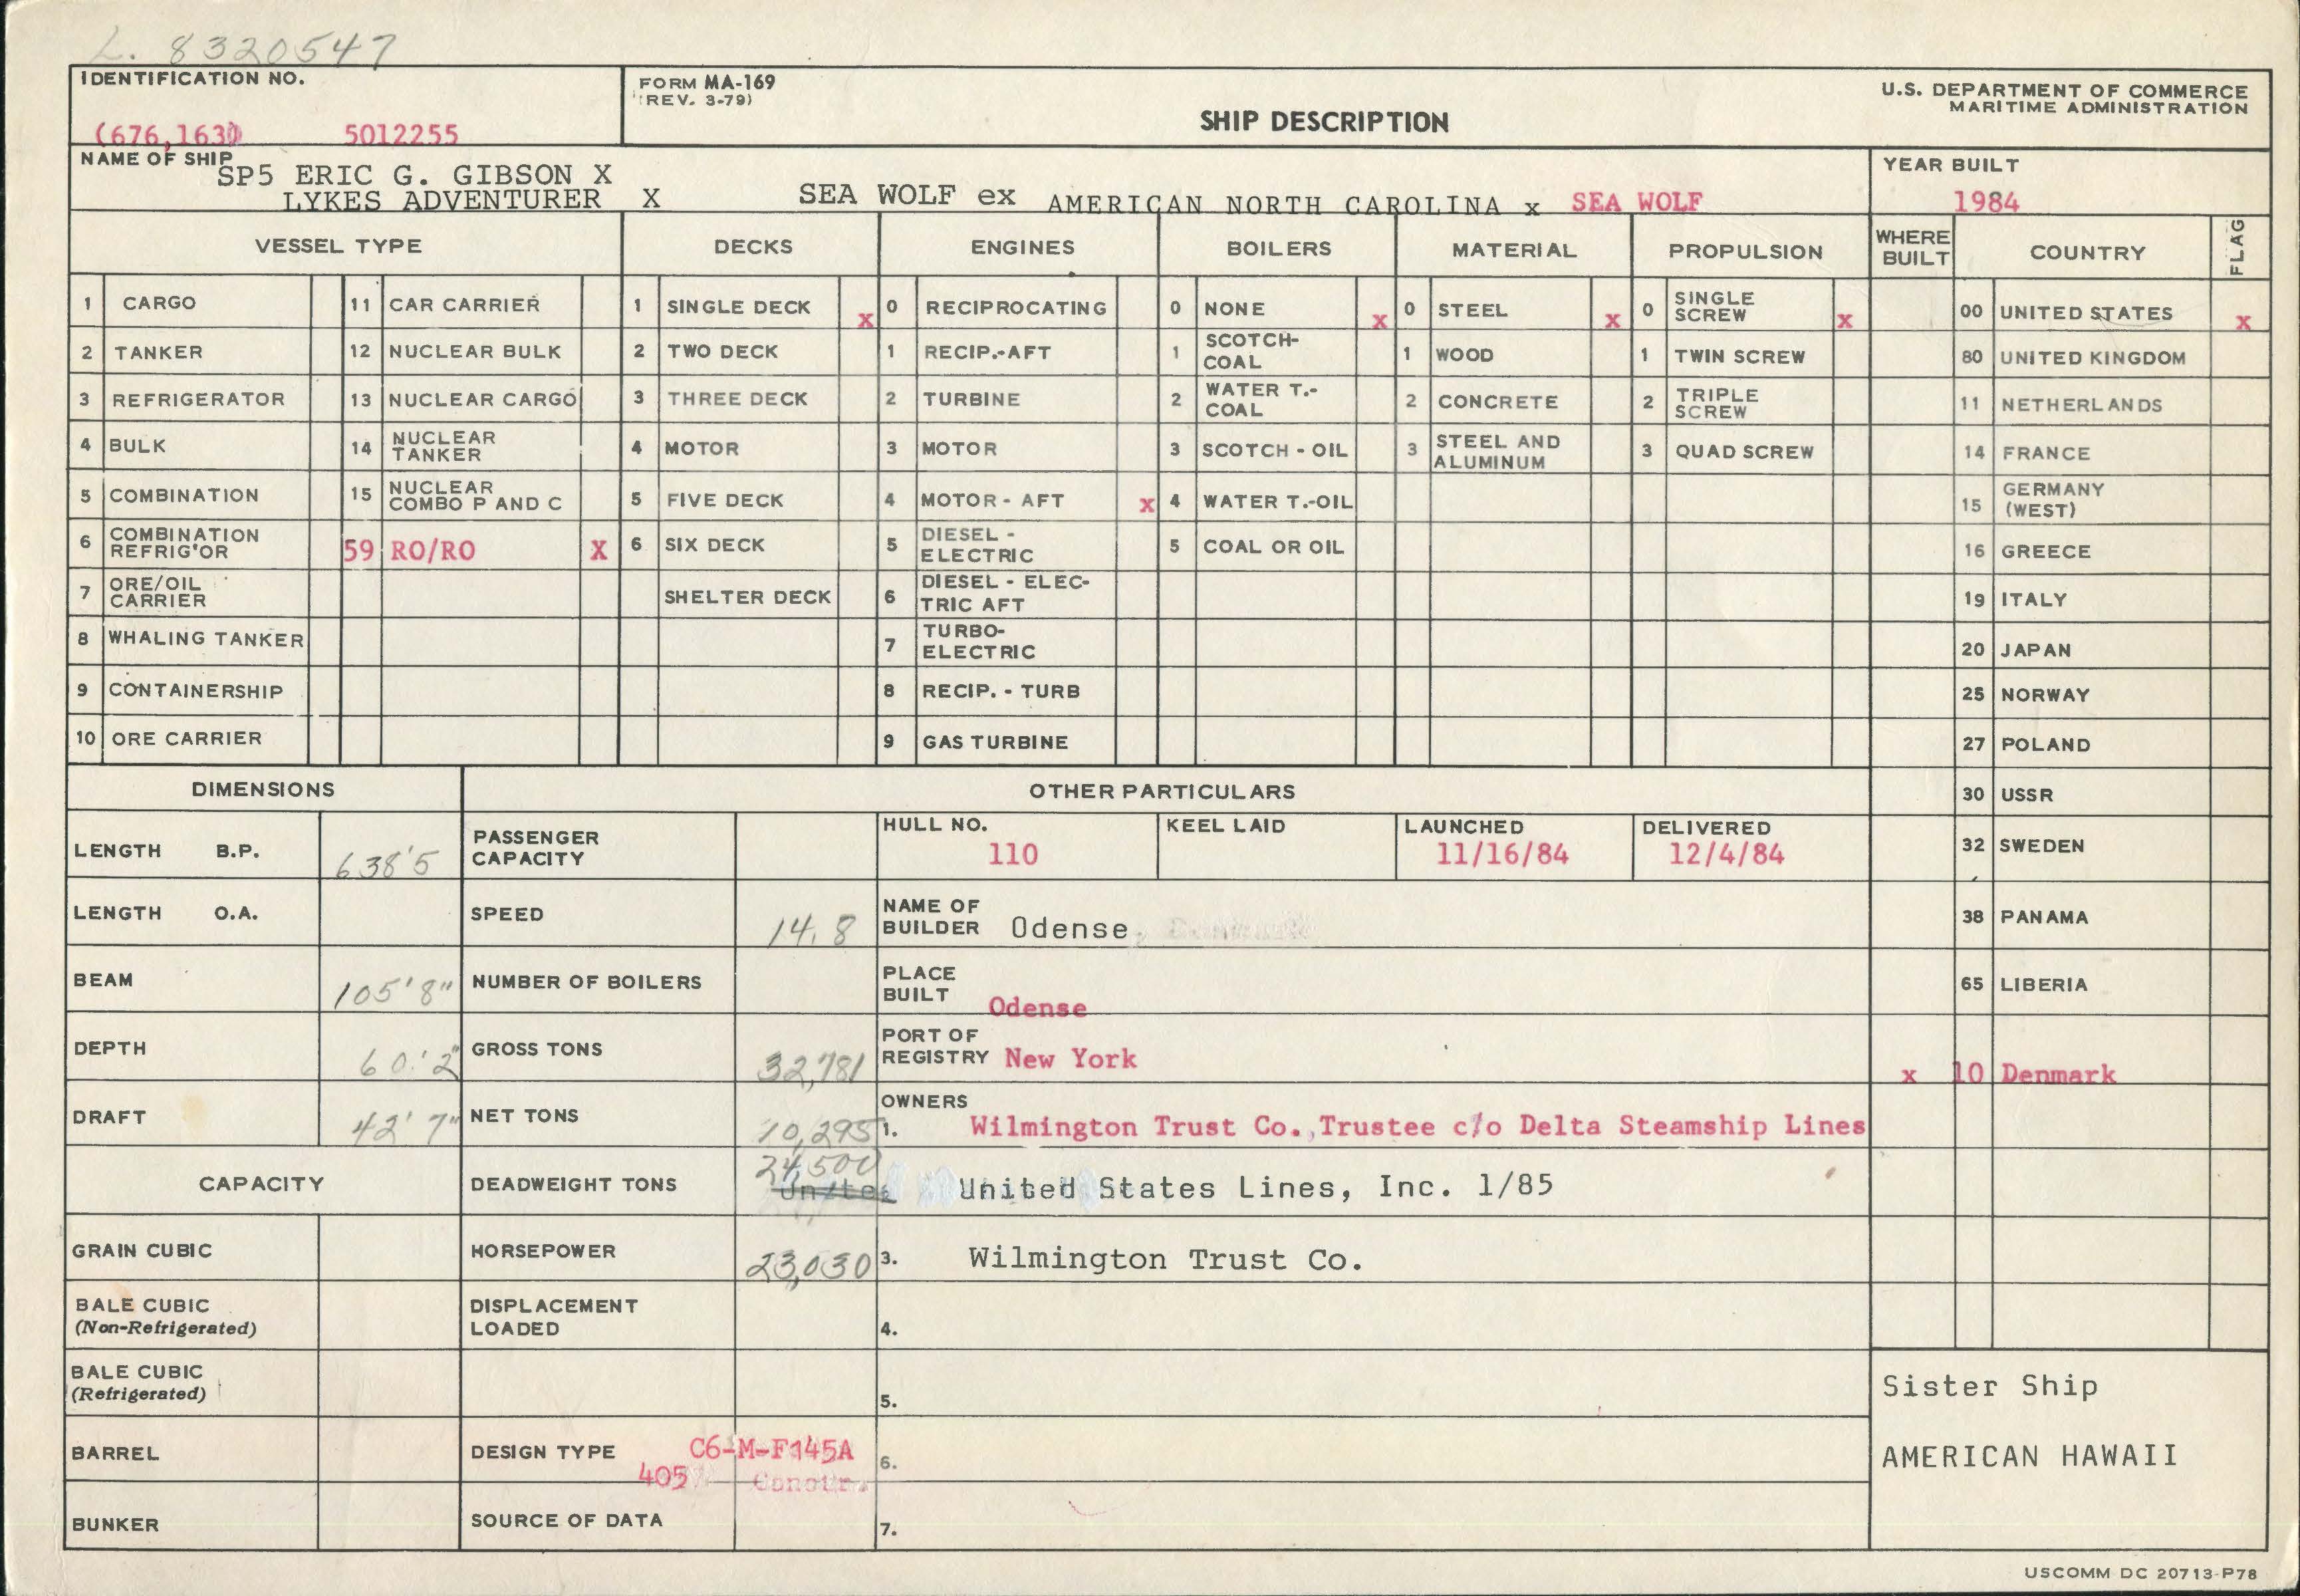 L. 8320547
IDENTIFICATION NO.
(676,163) 5012255
FORM MA-169
(REV. 3-79)
SHIP DESCRIPTION
U.S. DEPARTMENT OF COMMERCE
MARITIME ADMINISTRATION
NAME OF SHIP
SP5 ERIC G. GIBSON X
LYKES ADVENTURER X SEA WOLF ex AMERICAN NORTH CAROLINA x SEA WOLF
YEAR BUILT
1984
VESSEL TYPE DECKS ENGINES BOILERS MATERIAL PROPULSION WHERE BUILT COUNTRY FLAG
1 CARGO 11 CAR CARRIER 1 SINGLE DECK x 0 RECIPROCATING 0 NONE x 0 STEEL x 0 SINGLE SCREW x 00 UNITED STATES x
2 TANKER 12 NUCLEAR BULK 2 TWO DECK 1 RECIP.-AFT 1 SCOTCH-COAL 1 WOOD 1 TWIN SCREW 80 UNITED KINGDOM
3 REFRIGERATOR 13 NUCLEAR CARGO 3 THREE DECK 2 TURBINE 2 WATER T.-COAL 2 CONCRETE 2 TRIPLE SCREW 11 NETHERLANDS
4 BULK 14 NUCLEAR TANKER 4 MOTOR 3 MOTOR 3 SCOTCH - OIL 3 STEEL AND ALUMINUM 3 QUAD SCREW 14 FRANCE
5 COMBINATION 15 NUCLEAR COMBO P AND C 5 FIVE DECK 4 MOTOR - AFT x 4 WATER T.-OIL 15 GERMANY (WEST)
6 COMBINATION REFRIG'OR 59 RO/RO X 6 SIX DECK 5 DIESEL - ELECTRIC 5 COAL OR OIL 16 GREECE
7 ORE/OIL CARRIER SHELTER DECK 6 DIESEL - ELECTRIC AFT 19 ITALY
8 WHALING TANKER 7 TURBO-ELECTRIC 20 JAPAN
9 CONTAINERSHIP 8 RECIP. - TURB 25 NORWAY
10 ORE CARRIER 9 GAS TURBINE 27 POLAND
DIMENSIONS OTHER PARTICULARS 30 USSR
LENGTH B.P. 638'5 PASSENGER CAPACITY HULL NO. 110 KEEL LAID LAUNCHED 11/16/84 DELIVERED 12/4/84 32 SWEDEN
LENGTH O.A. SPEED 14.8 NAME OF BUILDER Odense 38 PANAMA
BEAM 105'8" NUMBER OF BOILERS PLACE BUILT Odense 65 LIBERIA
DEPTH 60'2" GROSS TONS 32,781 PORT OF REGISTRY New York x 10 Denmark
DRAFT 42'7" NET TONS 10,295 OWNERS 1. Wilmington Trust Co.,Trustee c/o Delta Steamship Lines
CAPACITY DEADWEIGHT TONS 24,500 United States Lines, Inc. 1/85
GRAIN CUBIC HORSEPOWER 23,030 3. Wilmington Trust Co.
BALE CUBIC (Non-Refrigerated) DISPLACEMENT LOADED 4.
BALE CUBIC (Refrigerated) 5.
Sister Ship
BARREL DESIGN TYPE C6-M-F145A 6.
405
AMERICAN HAWAII
BUNKER SOURCE OF DATA 7.
USCOMM DC 20713-P78